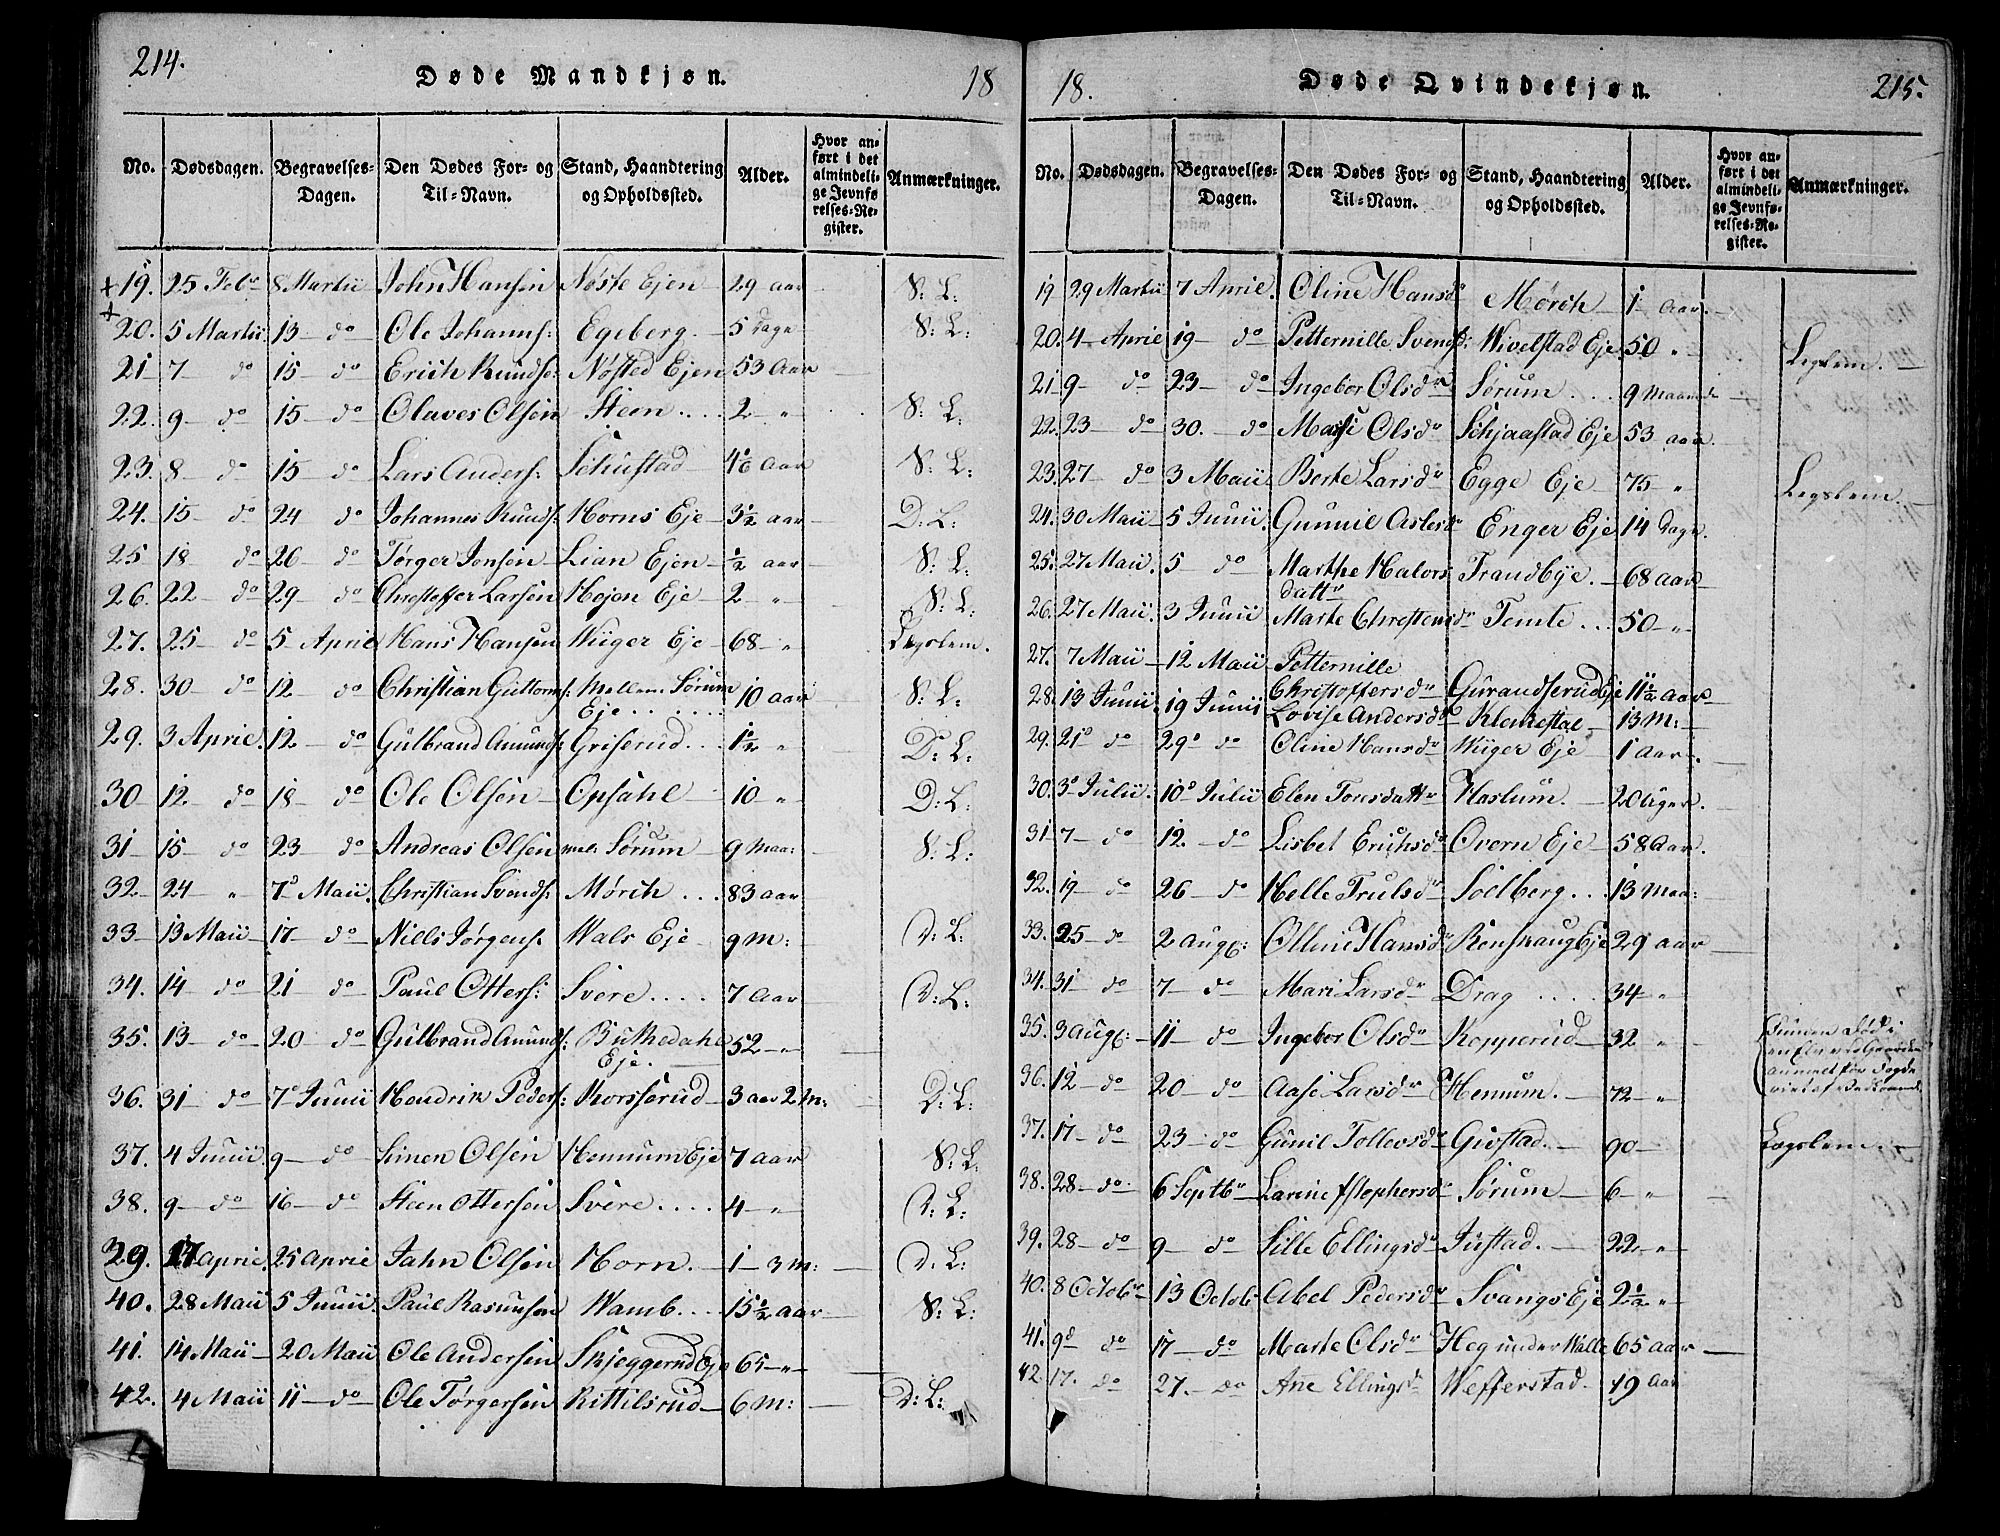 214.
Døde Mandkjøn.
18
No. Dødsdagen. Begravelses-Dagen. Den Dødes For- og Til-Navn. Stand, Haandtering og Opholdssted. Alder. Hvor anført i det almindelige Jevnførelses-Register. Anmærkninger.
19. 25 Febr 8 Martii John Hansen Nøste Ejen 29 aar S: L:
20. 5 Martii 13 do Ole Johanns: Egeberg 5 dage S: L:
21 7 do 15 do Erich Knuds: Nøsted Ejen 53 Aar
22. 9 do 15 do Olaves Olsen Steen .... 2 " S: L:
23. 8 do 15 do Lars Anders: Schustad Aar S: L:
24. 15 do 24 do Johannes Knuds: Horns Eje 3½ aar D: L:
25 18 do 26 do Tørger Jonsen Lian Ejen ½ aar S: L:
26. 22 do 29 do Christoffer Larsen Hojen Eje 2 " S: L:
27. 25 do 5 April Hans Hansen Wiiger Eje 68 " Lægslem.
28. 30 do 12 do Christian Guttorms: Mellem Sørum Eje ..... 10 aar S: L:
29. 3 April. 12 do Gulbrand Amunds: Griserud... 1½ " D: L:
30 12 do 18 do Ole Olsen Opsahl 10 " D: L:
31 15 do 23 do Andreas Olsen mel: Sørum 9 Maa: S: L:
32 24 " 7de Maii. Christian Svends: Mörch ... 83 aar
33 13 Maii 17 do Niells Jørgens: Wals Eje 9 M: D: L:
34. 14 do 21 do Paul Otters: Svere .... 7 Aar D: L:
35. 13 do 20 do Gulbrand Amunds: Butkedahl Eje. 52 "
36. 31 do 7de Junii Hendrik Peders: Korsserud 3 aar 2 M: D: L:
37. 4 Junii 9 do Simen Olsen Hemnum Eje 7 aar S: L:
38. 9 do 16 do Steen Ottersen Svere .... 4 " D: L:
39. 17 April. 25 April Jahn Olsen Horn. 1 3 M: D: L:
40. 28 Maii 5 Junii Paul Rasmusen Wamb... 15½ aar S: L:
41. 14 Maii 20 Maii Ole Andersen Skjeggerud Eje 65 "
42. 4 Maii 11 do Ole Tørgersen Kittilsrud 6 M: D: L:
18.
Døde Qvindekjøn.
215.
No. Dødsdagen. Begravelses-Dagen. Den Dødes For- og Til-Navn. Stand, Haandtering og Opholdssted. Alder. Hvor anført i det almindelige Jevnførelses-Register. Anmærkninger.
19 29 Martii 7 April. Oline Hansdr Mörch 1 Aar.
20. 4 April 19 do Petternille Svendsd: Wivelstad Eje 50 " Legslem.
21 9 do 23 do Ingebor Olsdr Sørum .... 9 Maaneder
22. 23 do 30. do Olsdr Schjaastad Eje 53 aar.
23. 27 do 3 Maii Berte Larsdr Egge Eje 75 " Legslem.
24. 30 Maii 5 Junii. Gunnil Aslesdr Enger Eje 14 dage.
25. 27 Maii. 5 do Marthe Halvors datter Trandbye. 68 aar
26. 27 Maii. 3 Junii Marte Christensdr Temte ... 50 "
27. 7 Maii 12 Maii Petternille Christoffersdr Gurandserud Eje 11½ aar
28. 13 Junii. 19 Junii Lovise Andersdr Klemestal 13 M:
29. 21de do 29de do Oline Hansdr Wiiger Eje 1 aar.
30. 3de Julii. 10de Julii Elen Tomsdatter Haslum. 20 Uger.
31 7 do 12. do Lisbet Erichsdr Overn Eje 58 Aar.
32. 19 do 26 do Helle Trulsdr Solberg... 13 Maa:
33. 25 do 2 Aug: Olline Hansdr Eje 29 aar
34. 31 do 7 do Mari Larsdr Drag .... 34 "
35. 3 Aug: 11 do Ingebor Olsdr Kopperud 32 "
36. 12 do 20 do Aase Larsdr Hemum. 72 "
37. 17 do 23 do Gunil Tollevsdr Giøstad. 90 Lægslem.
38. 28 do 6 Septbr Larine Sørum 6 "
39. 28 do 9 do Sille Ellingsdr Justad. 22 "
40. 8 Octobr 13 Octob Abel Pedersdr Svangs Eje 2½ "
41. 9d do 17 do Marte Olsdr Heg under Walle 65 aar
42 17. do 27. do Ane Ellingsdr Wefferstad. 19 aar